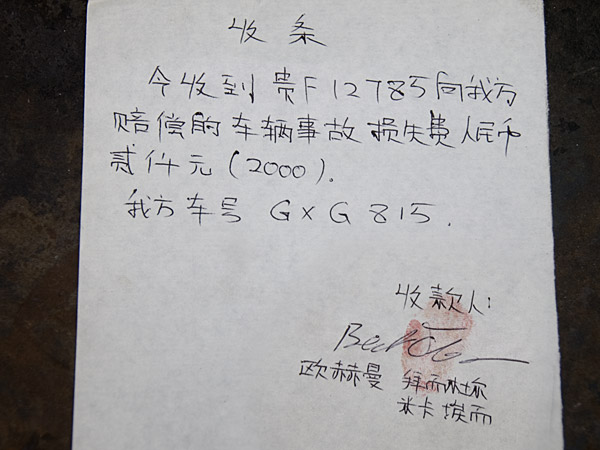 收条
今收到贵F12785向我方
赔偿的车辆事故损失费人民币
贰仟元(2000).
我方车号 GXG 815.
收款人:
欧赫曼 拜而
米卡埃而